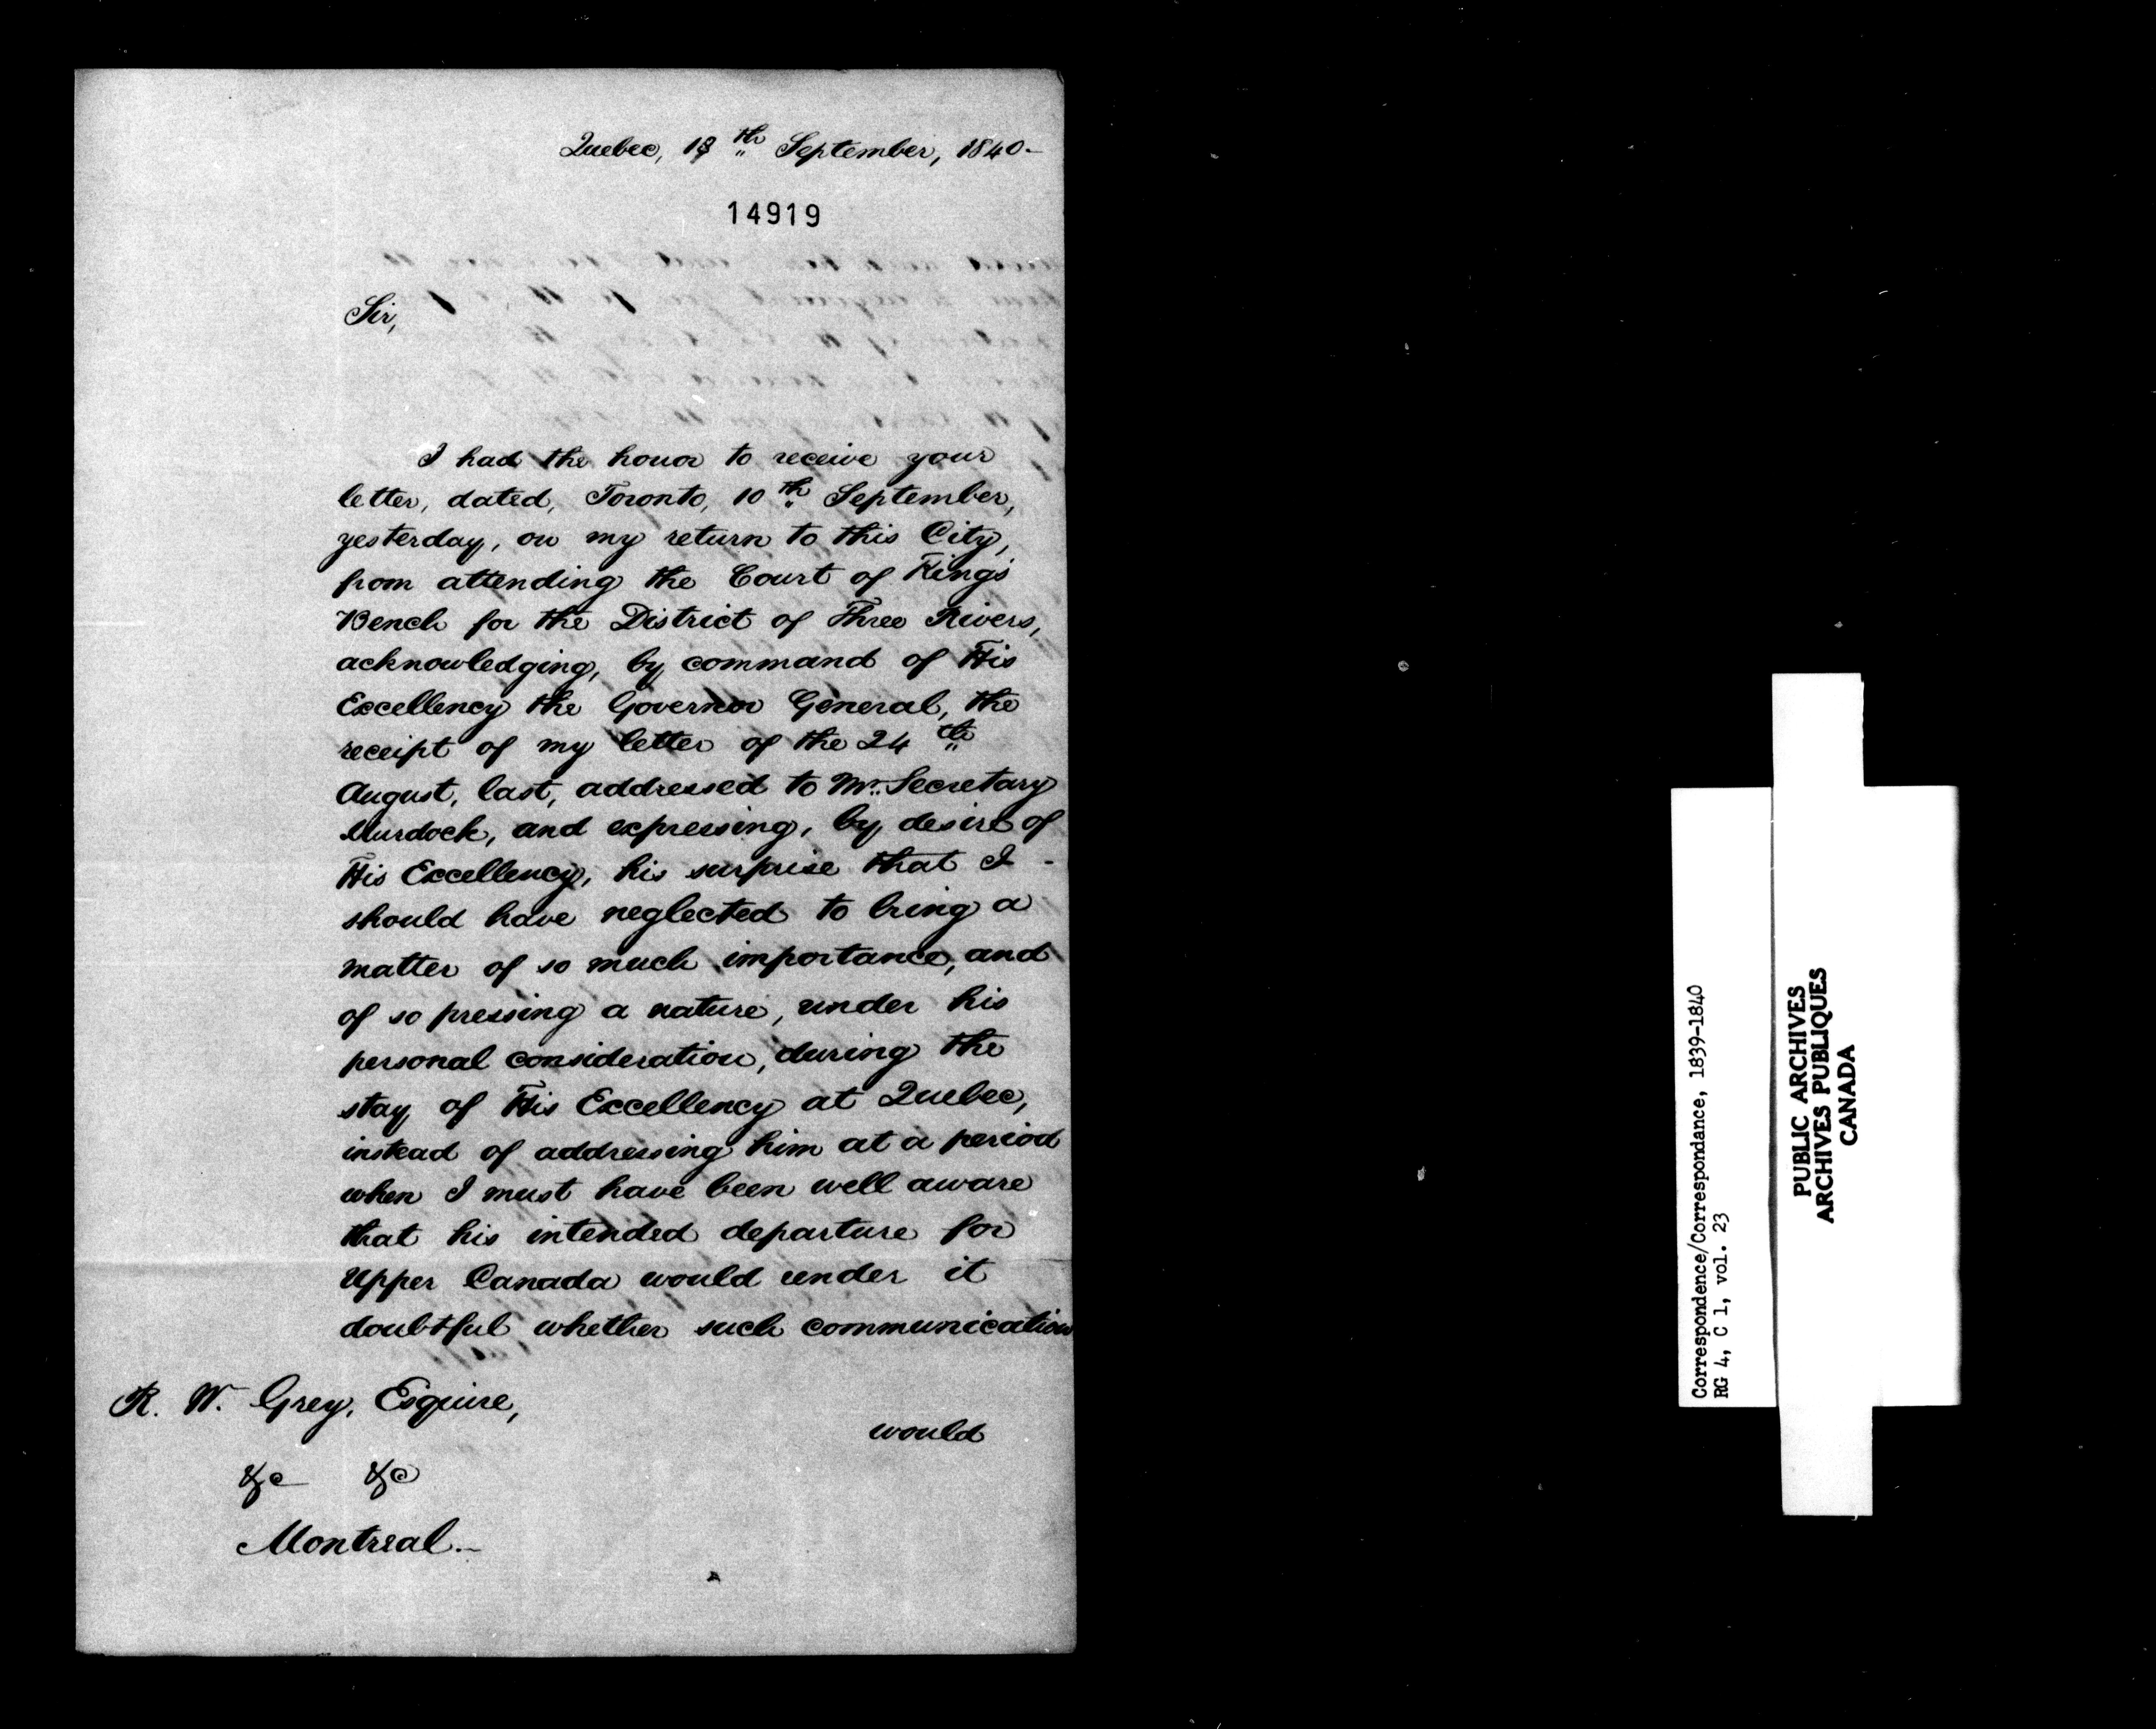 Quebec, 18th September, 1840-
14919
Sir,
I had the honor to receive your
letter, dated, Toronto, 10th September,
yesterday, on my return to this City,
from attending the Court of King's
Bench for the District of Three Rivers,
acknowledging, by command of His
Excellency the Governor General, the
receipt of my letter of the 24th
August, last, addressed to Mr. Secretary
Murdock, and expressing, by desire of
His Excellency, his surprise that I -
should have neglected to bring a
matter of so much importance, and
of so pressing a nature, under his
personal consideration, during the
stay of His Excellency at Quebec,
instead of addressing him at a period
when I must have been well aware
that his intended departure for
Upper Canada would render it
doubtful whether such communication
R. W. Grey, Esquire,
would
&c &c
Montreal.-
Correspondence/Correspondance, 1839-1840
RG 4, C 1, vol. 23
PUBLIC ARCHIVES
ARCHIVES PUBLIQUES
CANADA